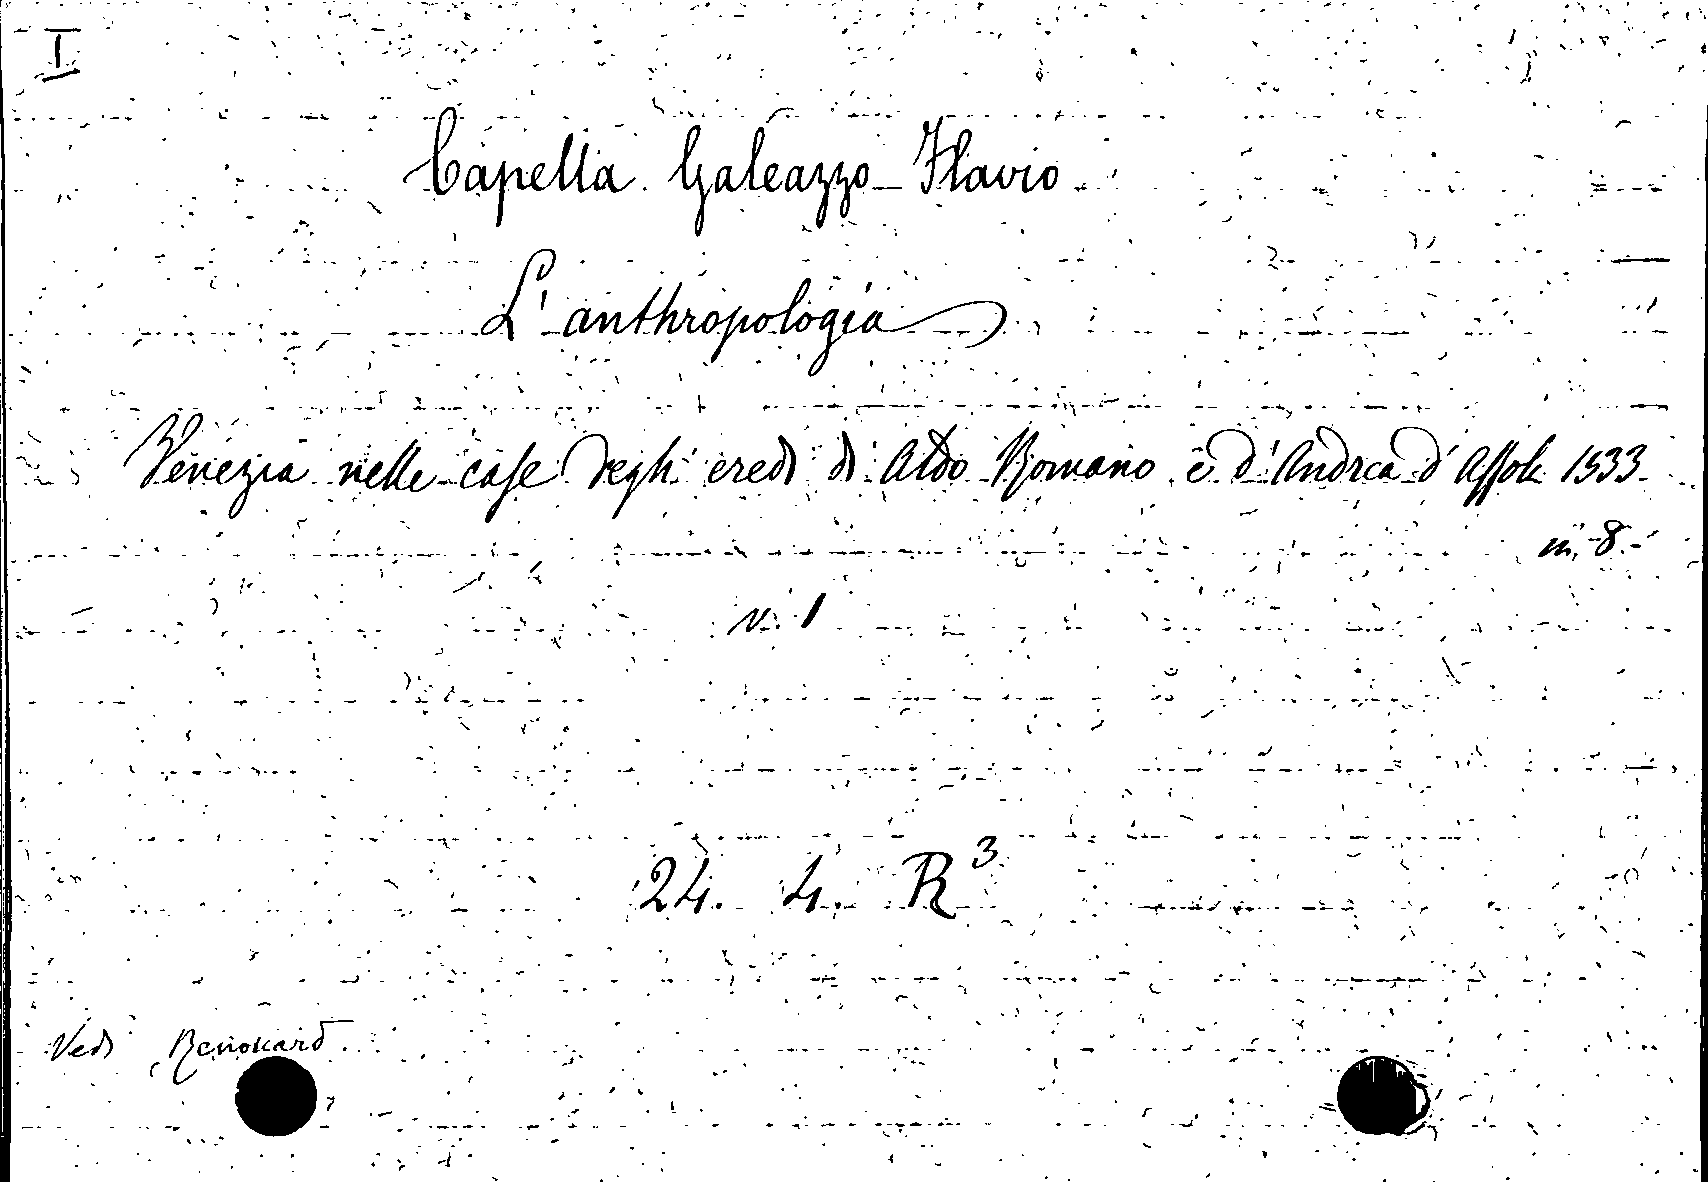 I
Capella Galeazzo Flavio
L'anthropologia
Venezia nelle case degli eredi di Aldo Romano e d'Andrea d'Assola 1533
in 8.
v. 1
24. 4. R 3
Vedi Renouard